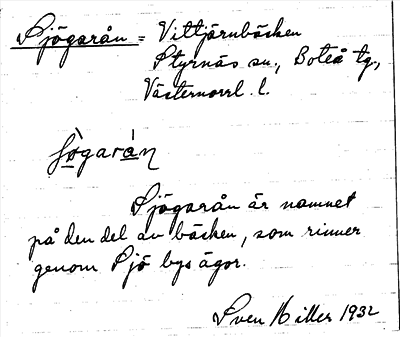 Sjögarån = Vittjärnbäcken
Styrnäs sn., Boteå tg.,
Västernorrl. l.
ʃògarán
Sjögarån är namnet
på den del av bäcken, som rinner
genom Sjö bys ägor.
Sven Hiller 1932